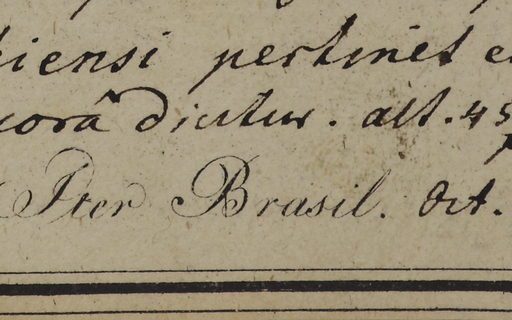 iensi pertinet e
corâ dicitur. alt. 45
Iter Brasil. Oct.